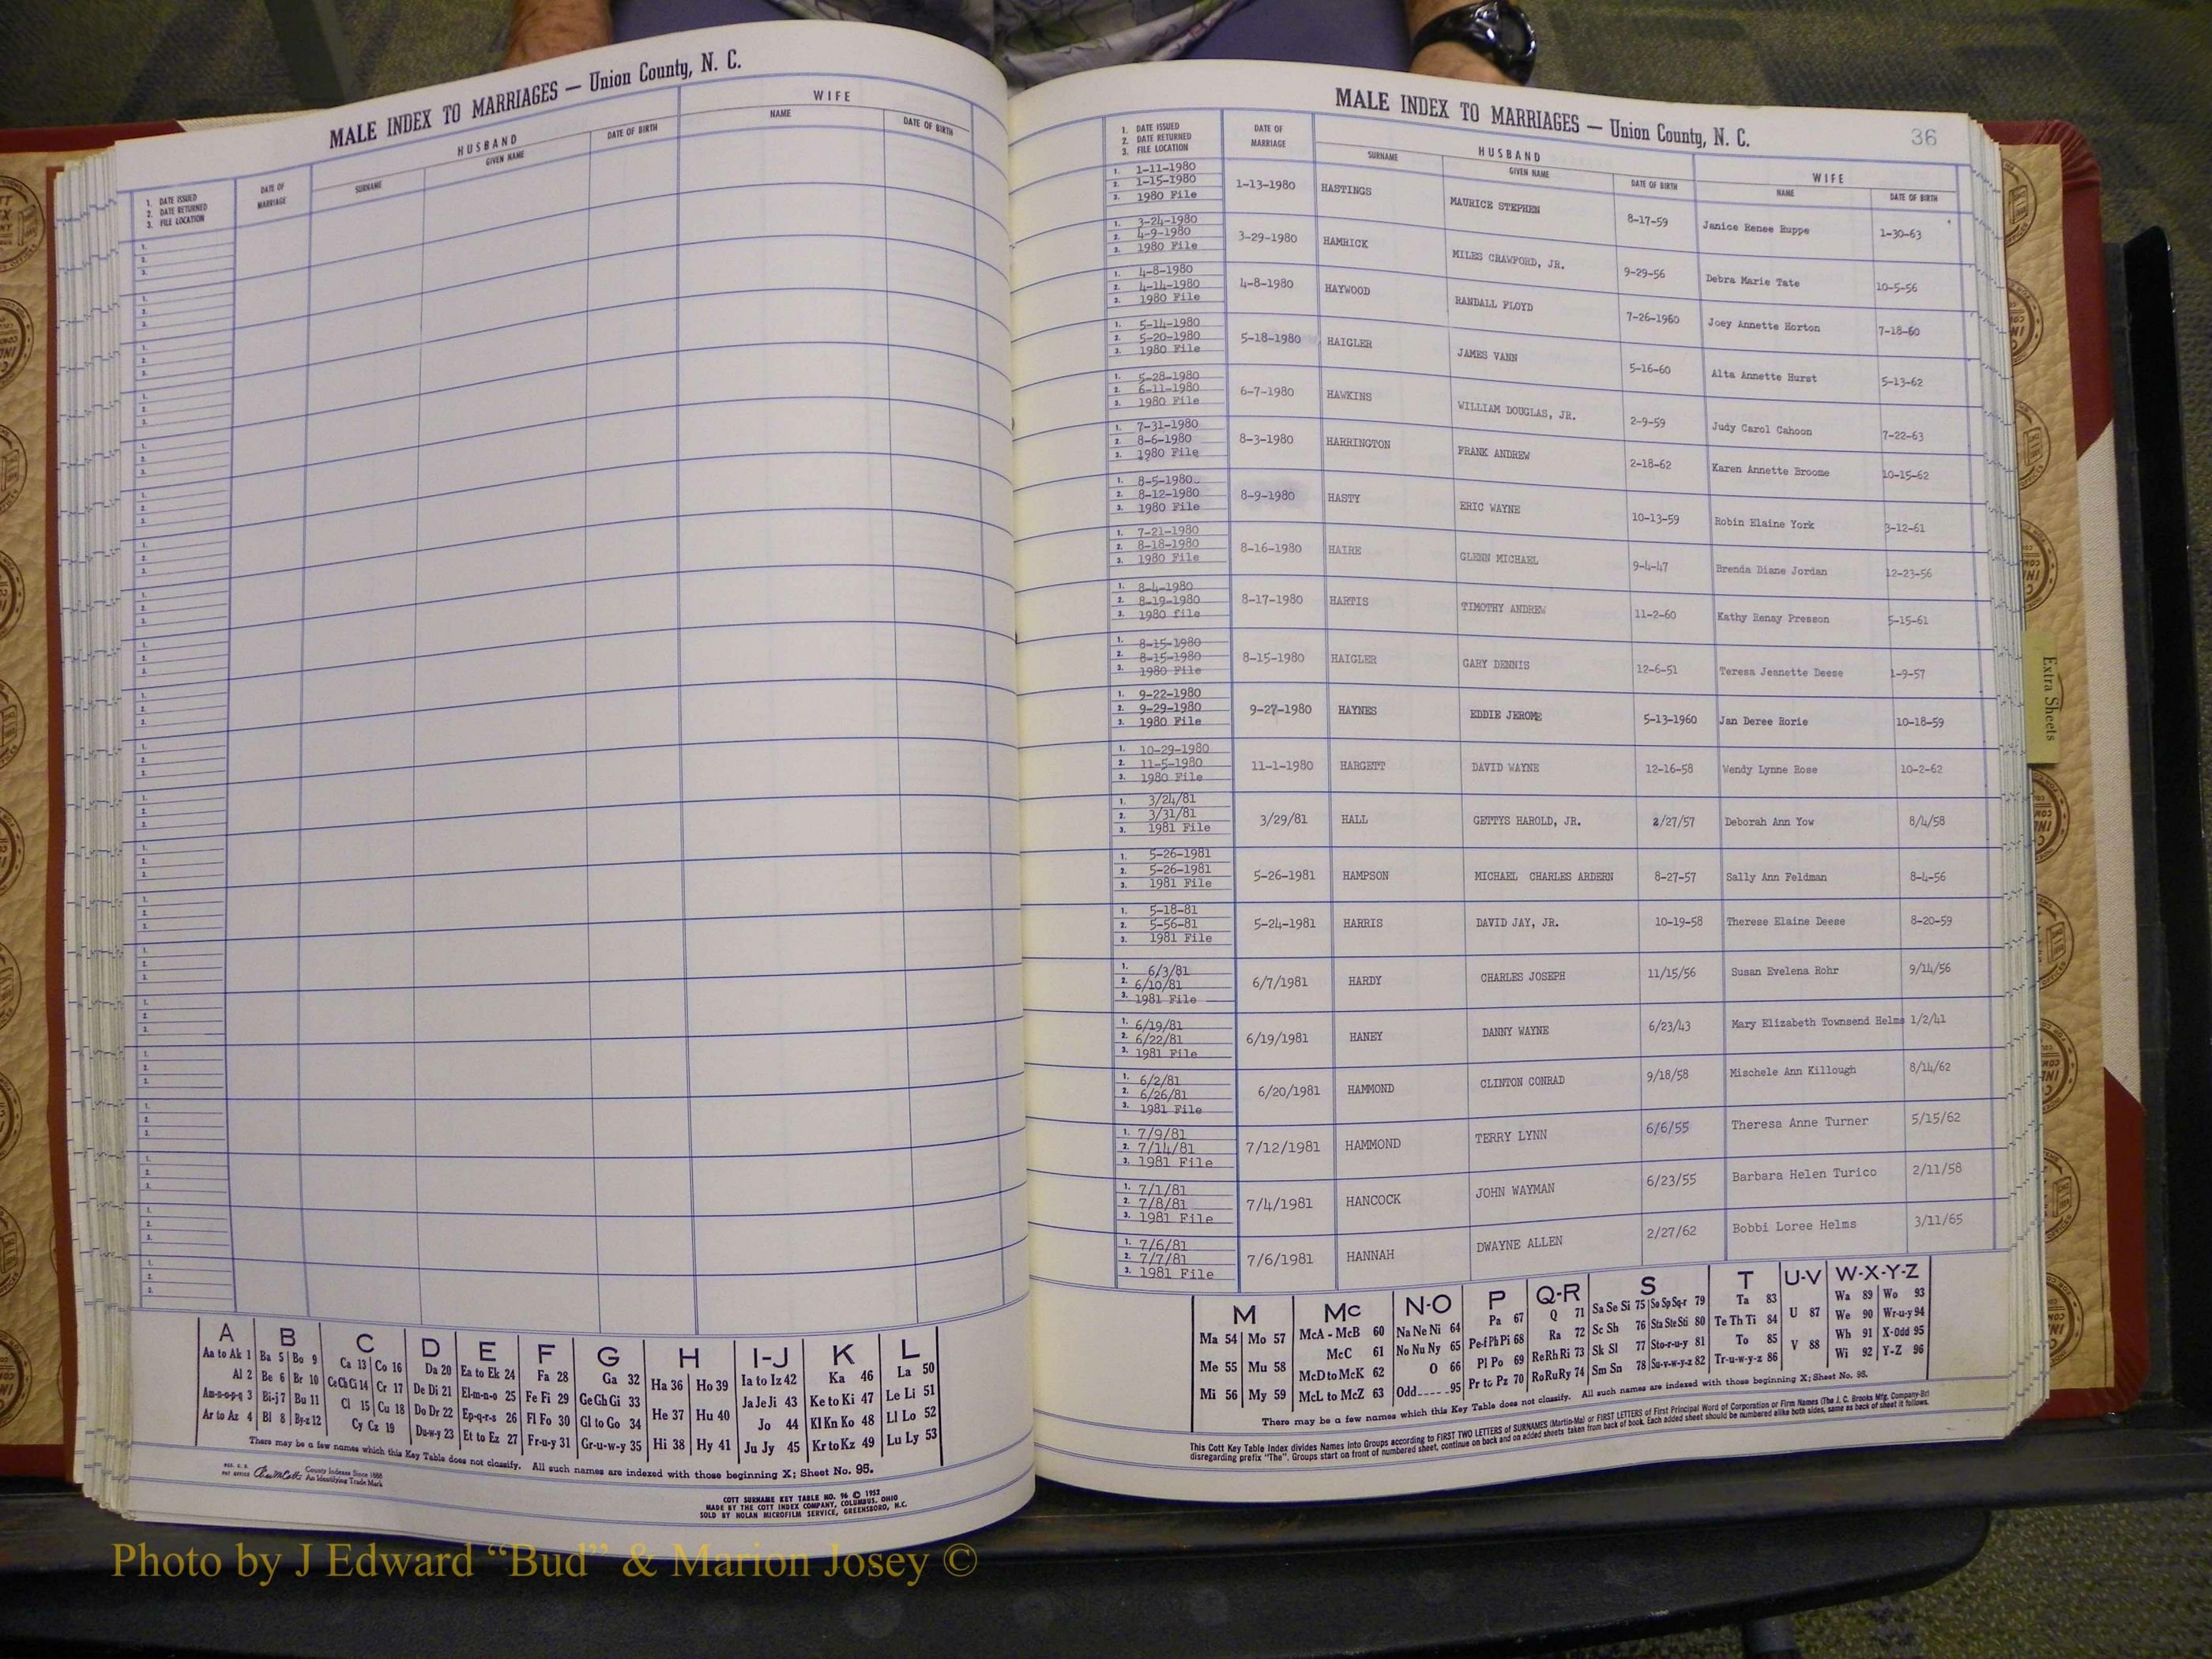 MALE INDEX TO MARRIAGES — Union County, N. C.
HUSBAND
WIFE
1. DATE ISSUED
2. DATE RETURNED
3. FILE LOCATION
DATE OF MARRIAGE
SURNAME
GIVEN NAME
DATE OF BIRTH
NAME
DATE OF BIRTH
A B C D E F G H I-J K L
Aa to Ak 1 Ba 5 Bo 9 Ca 13 Co 16 Da 20 Ea to Ek 24 Fa 28 Ga 32 Ha 36 Ho 39 Ia to Iz 42 Ka 46 La 50
Al 2 Be 6 Br 10 Ce Ch Ci 14 Cr 17 De Di 21 El-m-n-o 25 Fe Fi 29 Ge Gh Gi 33 Ja Je Ji 43 Ke to Ki 47 Le Li 51
Am-n-o-p-q 3 Bi-j 7 Bu 11 Cl 15 Cu 18 Do Dr 22 Ep-q-r-s 26 Fl Fo 30 Gl to Go 34 He 37 Hu 40 Jo 44 Kl Kn Ko 48 Ll Lo 52
Ar to Az 4 Bl 8 By-z 12 Cy Cz 19 Du-w-y 23 Et to Ez 27 Fr-u-y 31 Gr-u-w-y 35 Hi 38 Hy 41 Ju Jy 45 Kr to Kz 49 Lu Ly 53
There may be a few names which this Key Table does not classify. All such names are indexed with those beginning X; Sheet No. 95.
County Indexes Since 1888
An Identifying Trade Mark
COTT SURNAME KEY TABLE NO. 96 © 1952
MADE BY THE COTT INDEX COMPANY, COLUMBUS, OHIO
SOLD BY NOLAN MICROFILM SERVICE, GREENSBORO, N.C.
MALE INDEX TO MARRIAGES — Union County, N. C.
36
1. DATE ISSUED
2. DATE RETURNED
3. FILE LOCATION
DATE OF MARRIAGE
HUSBAND
SURNAME
GIVEN NAME
DATE OF BIRTH
WIFE
NAME
DATE OF BIRTH
1. 1-11-1980
2. 1-15-1980
3. 1980 File
1-13-1980 HASTINGS MAURICE STEPHEN 8-17-59 Janice Renee Ruppe 1-30-63
1. 3-24-1980
2. 4-9-1980
3. 1980 File
3-29-1980 HAMRICK MILES CRAWFORD, JR. 9-29-56 Debra Marie Tate 10-5-56
1. 4-8-1980
2. 4-14-1980
3. 1980 File
4-8-1980 HAYWOOD RANDALL FLOYD 7-26-1960 Joey Annette Horton 7-18-60
1. 5-14-1980
2. 5-20-1980
3. 1980 File
5-18-1980 HAIGLER JAMES VANN 5-16-60 Alta Annette Hurst 5-13-62
1. 5-28-1980
2. 6-11-1980
3. 1980 File
6-7-1980 HAWKINS WILLIAM DOUGLAS, JR. 2-9-59 Judy Carol Cahoon 7-22-63
1. 7-31-1980
2. 8-6-1980
3. 1980 File
8-3-1980 HARRINGTON FRANK ANDREW 2-18-62 Karen Annette Broome 10-15-62
1. 8-5-1980
2. 8-12-1980
3. 1980 File
8-9-1980 HASTY ERIC WAYNE 10-13-59 Robin Elaine York 3-12-61
1. 7-21-1980
2. 8-18-1980
3. 1980 File
8-16-1980 HAIRE GLENN MICHAEL 9-4-47 Brenda Diane Jordan 12-23-56
1. 8-4-1980
2. 8-19-1980
3. 1980 file
8-17-1980 HARTIS TIMOTHY ANDREW 11-2-60 Kathy Renay Presson 5-15-61
1. 8-15-1980
2. 8-15-1980
3. 1980 File
8-15-1980 HAIGLER GARY DENNIS 12-6-51 Teresa Jeanette Deese 1-9-57
1. 9-22-1980
2. 9-29-1980
3. 1980 File
9-27-1980 HAYNES EDDIE JEROME 5-13-1960 Jan Deree Rorie 10-18-59
1. 10-29-1980
2. 11-5-1980
3. 1980 File
11-1-1980 HARGETT DAVID WAYNE 12-16-58 Wendy Lynne Rose 10-2-62
1. 3/24/81
2. 3/31/81
3. 1981 File
3/29/81 HALL GETTYS HAROLD, JR. 2/27/57 Deborah Ann Yow 8/4/58
1. 5-26-1981
2. 5-26-1981
3. 1981 File
5-26-1981 HAMPSON MICHAEL CHARLES ARDERN 8-27-57 Sally Ann Feldman 8-4-56
1. 5-18-81
2. 5-56-81
3. 1981 File
5-24-1981 HARRIS DAVID JAY, JR. 10-19-58 Therese Elaine Deese 8-20-59
1. 6/3/81
2. 6/10/81
3. 1981 File
6/7/1981 HARDY CHARLES JOSEPH 11/15/56 Susan Evelena Rohr 9/14/56
1. 6/19/81
2. 6/22/81
3. 1981 File
6/19/1981 HANEY DANNY WAYNE 6/23/43 Mary Elizabeth Townsend Helms 1/2/41
1. 6/2/81
2. 6/26/81
3. 1981 File
6/20/1981 HAMMOND CLINTON CONRAD 9/18/58 Mischele Ann Killough 8/14/62
1. 7/9/81
2. 7/14/81
3. 1981 File
7/12/1981 HAMMOND TERRY LYNN 6/6/55 Theresa Anne Turner 5/15/62
1. 7/1/81
2. 7/8/81
3. 1981 File
7/4/1981 HANCOCK JOHN WAYMAN 6/23/55 Barbara Helen Turico 2/11/58
1. 7/6/81
2. 7/7/81
3. 1981 File
7/6/1981 HANNAH DWAYNE ALLEN 2/27/62 Bobbi Loree Helms 3/11/65
M Mc N-O P Q-R S T U-V W-X-Y-Z
Ma 54 Mo 57 McA - McB 60 Na Ne Ni 64 Pa 67 Q 71 Sa Se Si 75 So Sp Sq-r 79 Ta 83 U 87 Wa 89 Wo 93
McC 61 No Nu Ny 65 Pe-f Ph Pi 68 Ra 72 Sc Sh 76 Sta Ste Sti 80 Te Th Ti 84 We 90 Wr-u-y 94
Me 55 Mu 58 McD to McK 62 O 66 Pl Po 69 Re Rh Ri 73 Sk Sl 77 Sto-r-u-y 81 To 85 V 88 Wh 91 X-Odd 95
Mi 56 My 59 McL to McZ 63 Odd-----95 Pr to Pz 70 Ro Ru Ry 74 Sm Sn 78 Su-v-w-y-z 82 Tr-u-w-y-z 86 Wi 92 Y-Z 96
There may be a few names which this Key Table does not classify. All such names are indexed with those beginning X; Sheet No. 95.
This Cott Key Table Index divides Names into Groups according to FIRST TWO LETTERS of SURNAMES (Martin-Ma) or FIRST LETTERS of First Principal Word of Corporation or Firm Names (The J. C. Brooks Mfg. Company-Br)
disregarding prefix "The". Groups start on front of numbered sheet, continue on back and on added sheets taken from back of book. Each added sheet should be numbered alike both sides, same as back of sheet it follows.
Extra Sheets
Photo by J Edward “Bud” & Marion Josey ©